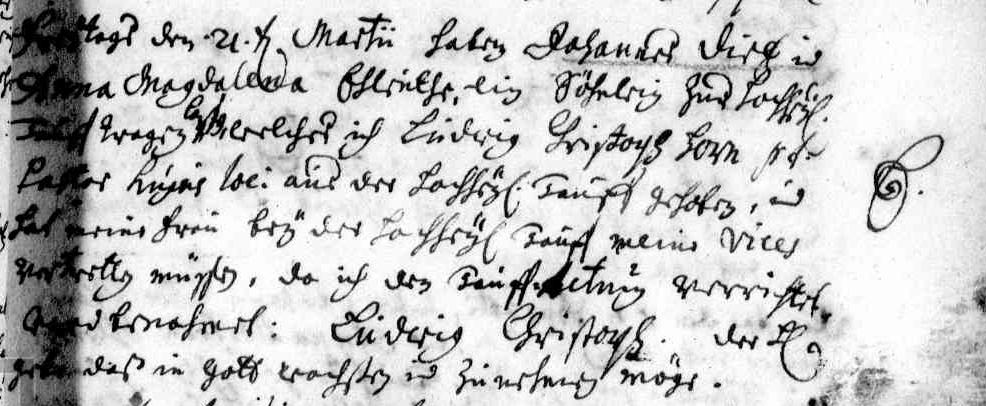 Freitags den 21.t Martii haben Johannes Dietz ud
Anna Magdalena Ehleuthe, ein Söhnlein zur Hochheyl.
Tauff tragen laßen welches ich Ludwig Christoph Horn p.t.
Pastor hujus loci aus der Hochheyl. Tauff gehoben, ud
hat meine Frau bey der Hochheyl. Tauff meine Vices
vertretten müssen, da ich den Tauff-Actum verrichtet,
ward benahmet: Ludwig Christoph. der H.
gebe daß in Gott wachsen ud zunehmen möge.